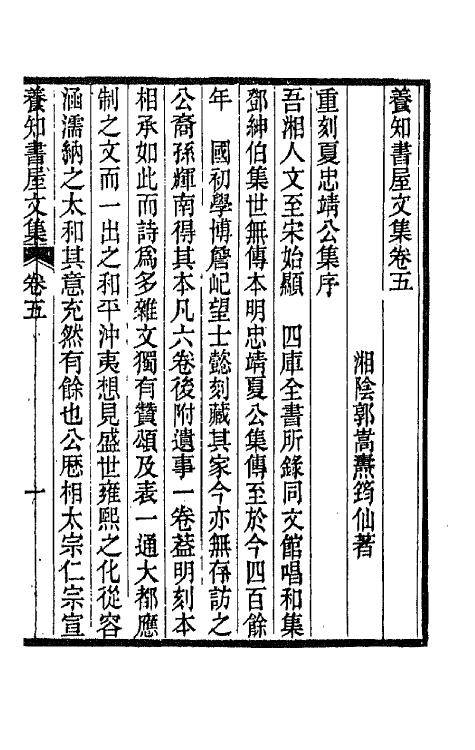 養知書屋文集卷五
湘陰郭嵩燾筠仙著
重刻夏忠靖公集序
吾湘人文至宋始顯　四庫全書所錄同文館唱和集
鄧紳伯集世無傳本明忠靖夏公集傳至於今四百餘
年　國初學博詹𡵺望士懿刻藏其家今亦無存訪之
公裔孫輝南得其本凡六卷後附遺事一卷葢明刻本
相承如此而詩爲多雜文獨有贊頌及表一通大都應
制之文而一出之和平沖夷想見盛世雍熙之化從容
涵濡納之太和其意充然有餘也公歷相太宗仁宗宣
養知書屋文集　卷五　十